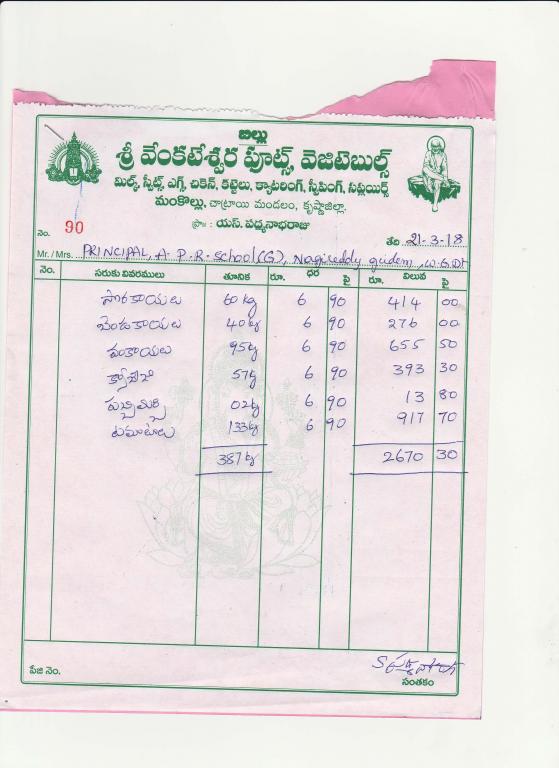 బిల్లు
శ్రీ వేంకటేశ్వర ఫ్రూట్స్, వెజిటెబుల్స్
మిల్క్, స్వీట్స్, ఎగ్స్, చికెన్, కట్టెలు, క్యాటరింగ్, స్వీపింగ్, సప్లయిర్స్
మంకొల్లు, చాట్రాయి మండలం, కృష్ణాజిల్లా.
ప్రొ: యస్. పద్మనాభరాజు
నెం. 90 తేది 21-3-18
Mr./Mrs. PRINCIPAL, A.P.R. School(G), Nagireddy gudem, W.G.Dt
నెం. సరుకు వివరములు తూనిక రూ. ధర పై రూ. విలువ పై
సొరకాయలు 60 kg 6 90 414 00
బెండకాయలు 40 kg 6 90 276 00
వంకాయలు 95 kg 6 90 655 50
క్యాబేజి 57 kg 6 90 393 30
పచ్చిమిర్చి 02 kg 6 90 13 80
టమాటాలు 133 kg 6 90 917 70
387 kg 2670 30
పేజి నెం.
సంతకం